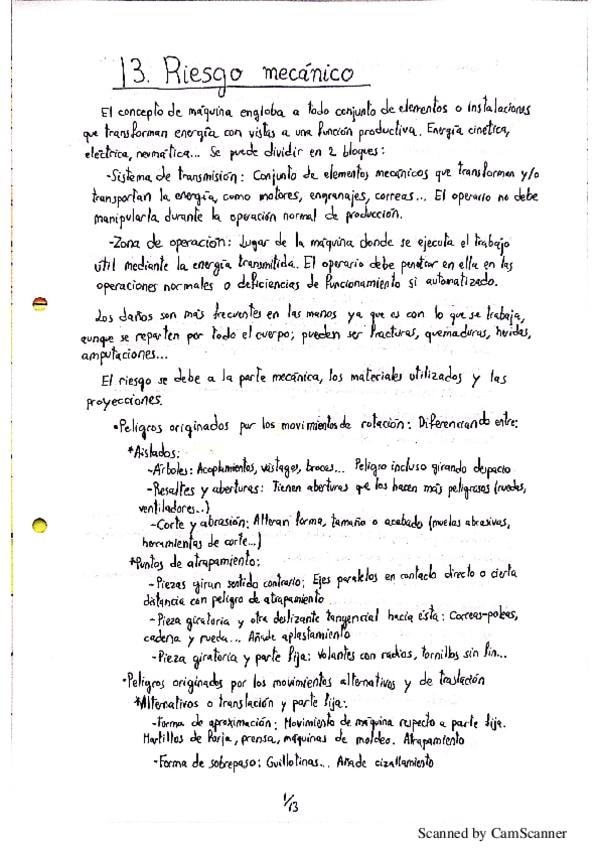 13. Riesgo mecánico
El concepto de máquina engloba a todo conjunto de elementos o instalaciones
que transforman energía con vistas a una función productiva. Energía cinética,
eléctrica, neumática... Se puede dividir en 2 bloques:
-Sistema de transmisión: Conjunto de elementos mecánicos que transforman y/o
transportan la energía, como motores, engranajes, correas... El operario no debe
manipularla durante la operación normal de producción.
-Zona de operación: Lugar de la máquina donde se ejecuta el trabajo
útil mediante la energía transmitida. El operario debe penetrar en ella en las
operaciones normales o deficiencias de funcionamiento si automatizado.
Los daños son más frecuentes en las manos ya que es con lo que se trabaja,
aunque se reparten por todo el cuerpo; pueden ser fracturas, quemaduras, heridas,
amputaciones...
El riesgo se debe a la parte mecánica, los materiales utilizados y las
proyecciones.
•Peligros originados por los movimientos de rotación: Diferenciando entre:
*Aislados:
-Árboles: Acoplamientos, vástagos, brocas... Peligro incluso girando despacio
-Resaltes y aberturas: Tienen aberturas que los hacen más peligrosos (ruedas,
ventiladores..)
-Corte y abrasión: Alteran forma, tamaño o acabado (muelas abrasivas,
herramientas de corte...)
*Puntos de atrapamiento:
-Piezas giran sentido contrario: Ejes paralelos en contacto directo o cierta
distancia con peligro de atrapamiento
-Pieza giratoria y otra deslizante tangencial hacia ésta: Correas-poleas,
cadena y rueda... Añade aplastamiento
-Pieza giratoria y parte fija: Volantes con radios, tornillos sin fin...
•Peligros originados por los movimientos alternativos y de traslación
*Alternativos o translación y parte fija:
-Forma de aproximación: Movimiento de máquina respecto a parte fija.
Martillos de forja, prensa, máquinas de moldeo. Atrapamiento
-Forma de sobrepaso: Guillotinas... Añade cizallamiento
1/13
Scanned by CamScanner